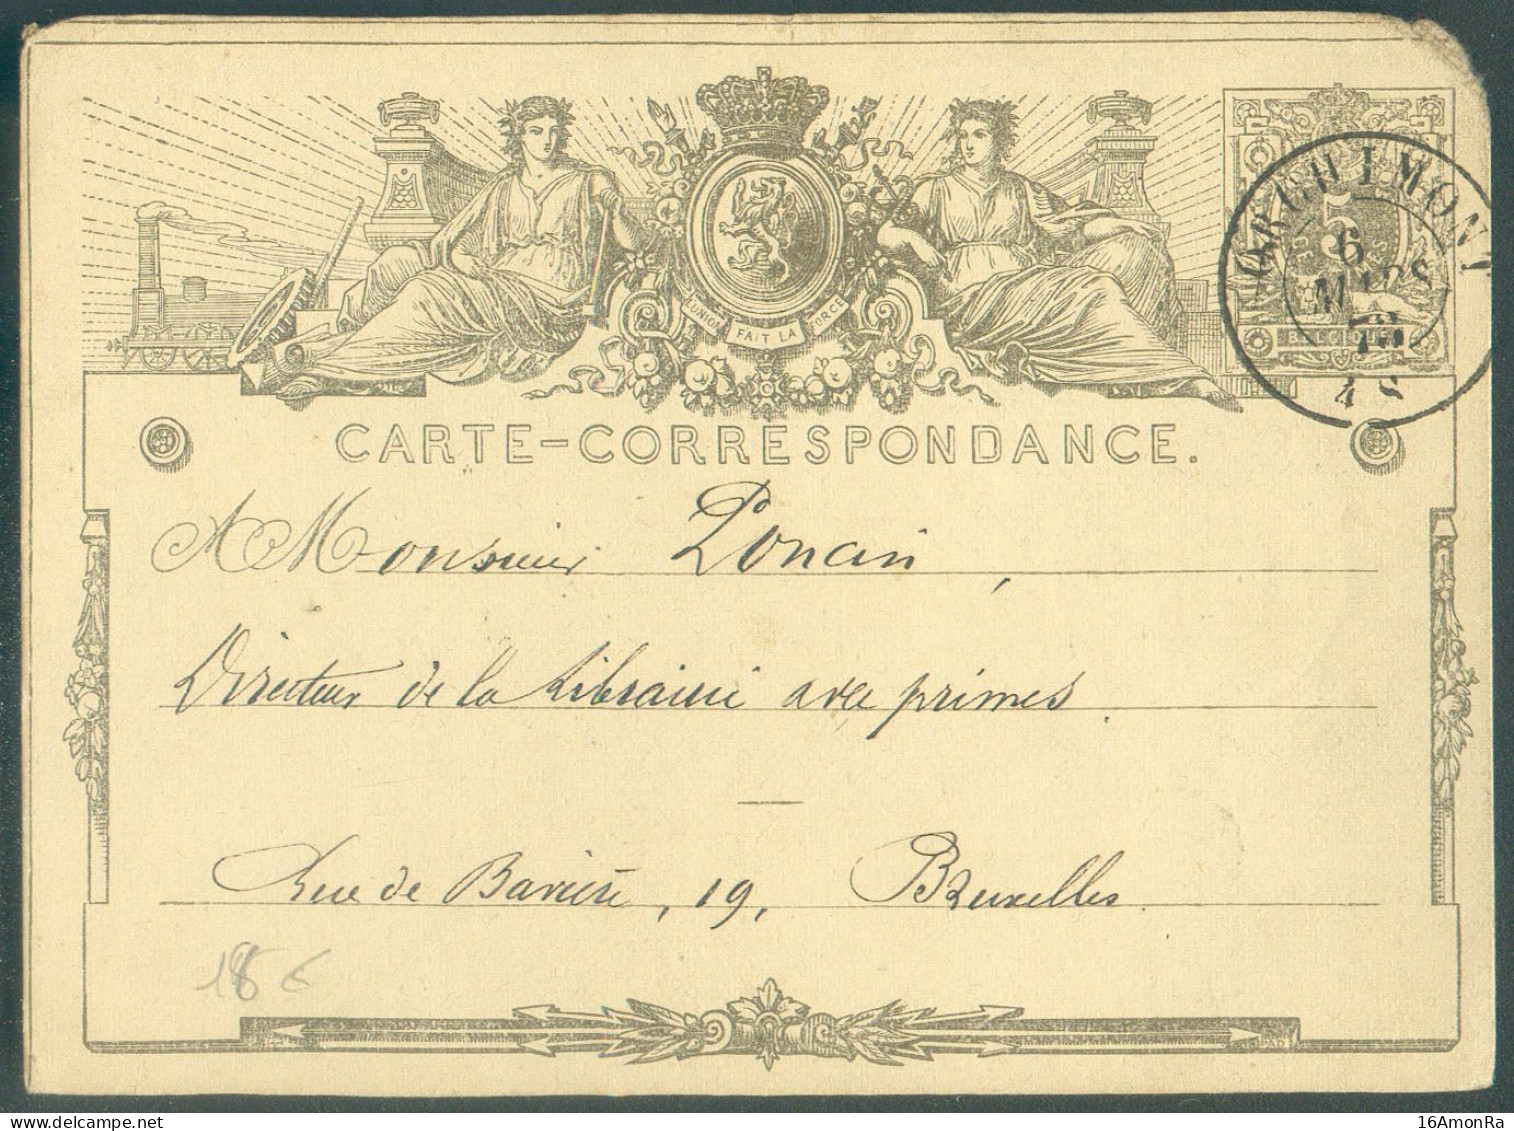 L'UNION FAIT LA FORCE
5
BELGIQUE
6
MARS
CARTE-CORRESPONDANCE.
A Monsieur Poncin,
Directeur de la Librairie avec primes.
Rue de Bavière, 19, Bruxelles.
18 €
16AmonRa